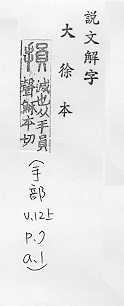 說文解字
大徐本
損
減也从手員
聲穌本切
(手部
v.12上
p.7
a.1)